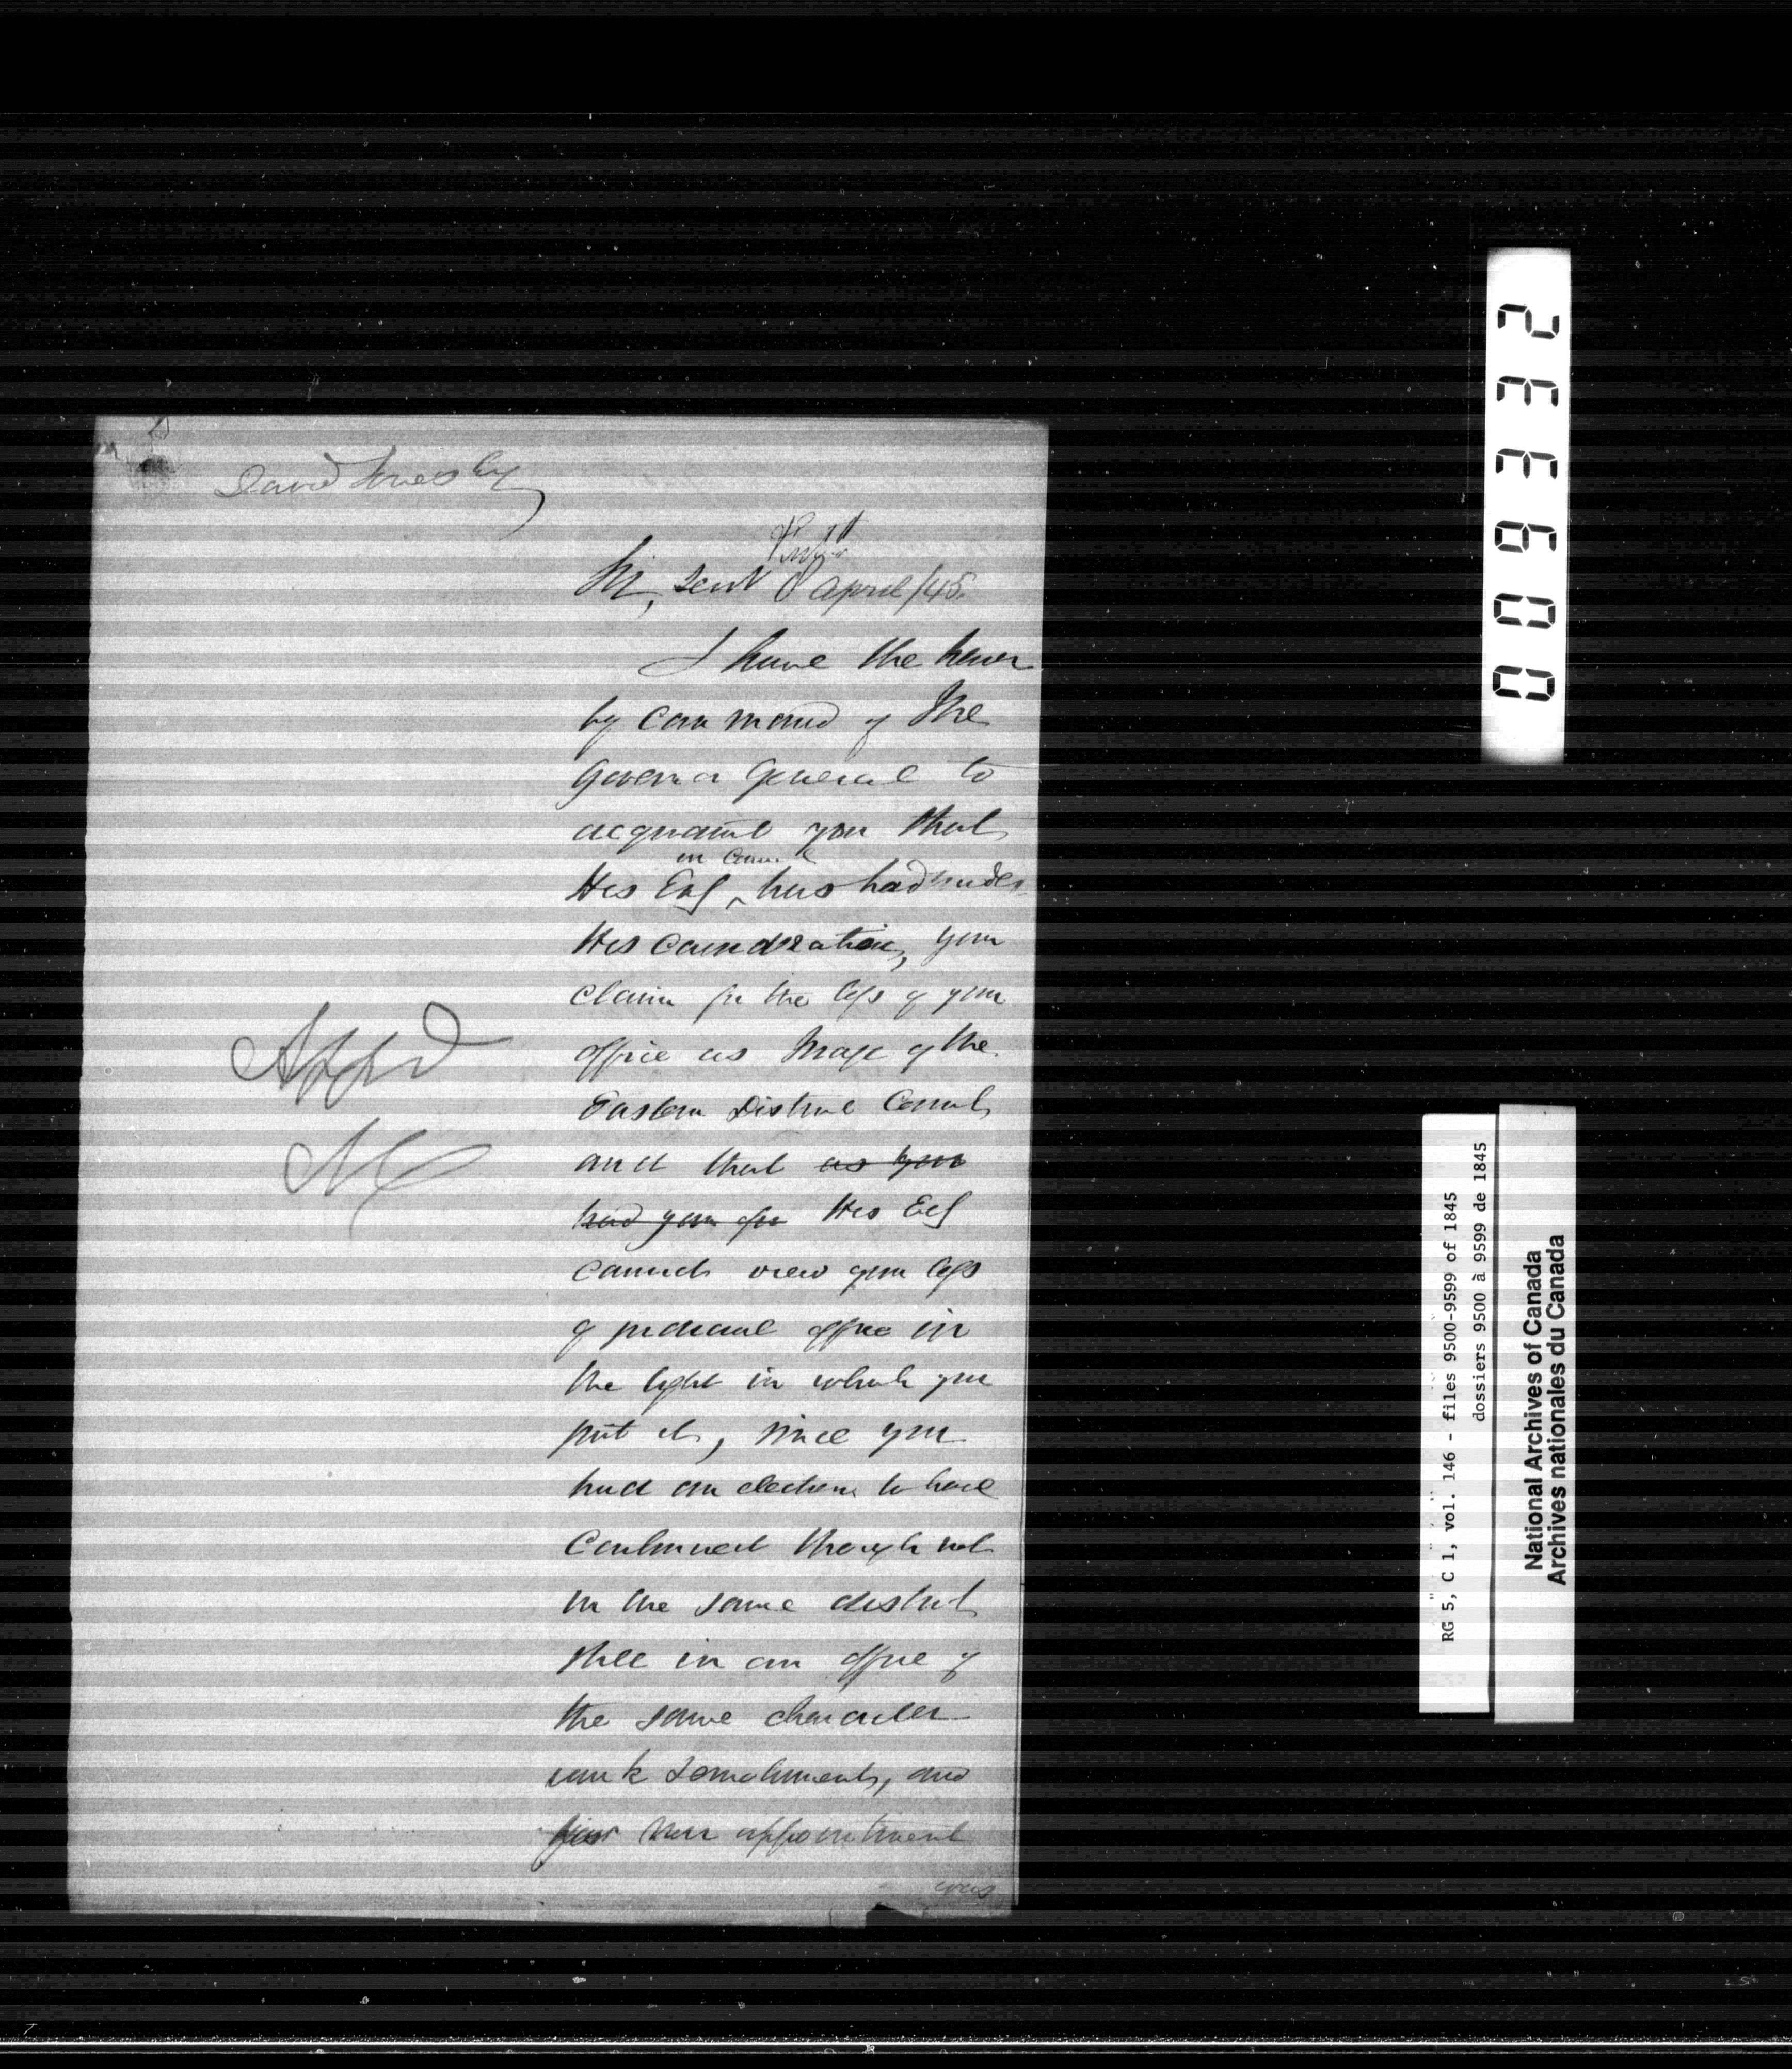 David Jones Esq
Sir, Sent 8 April/45.
I have the honor
by command of The
Governor General to
acquaint you that
in Council
His Exc^y has had under
His Consideration, your
claim for the loss of your
office as Judge of the
Eastern District Court,
and that as you
had your His Exc^y
cannot view your loss
of judicial office in
the light in which you
put it, since you
had an election to have
continued though not
in the same district
still in an office of
the same character
rank & emoluments, and
your new appointment
was
Appd
009332
RG 5, C 1, vol. 146 - files 9500-9599 of 1845
dossiers 9500 à 9599 de 1845
National Archives of Canada
Archives nationales du Canada